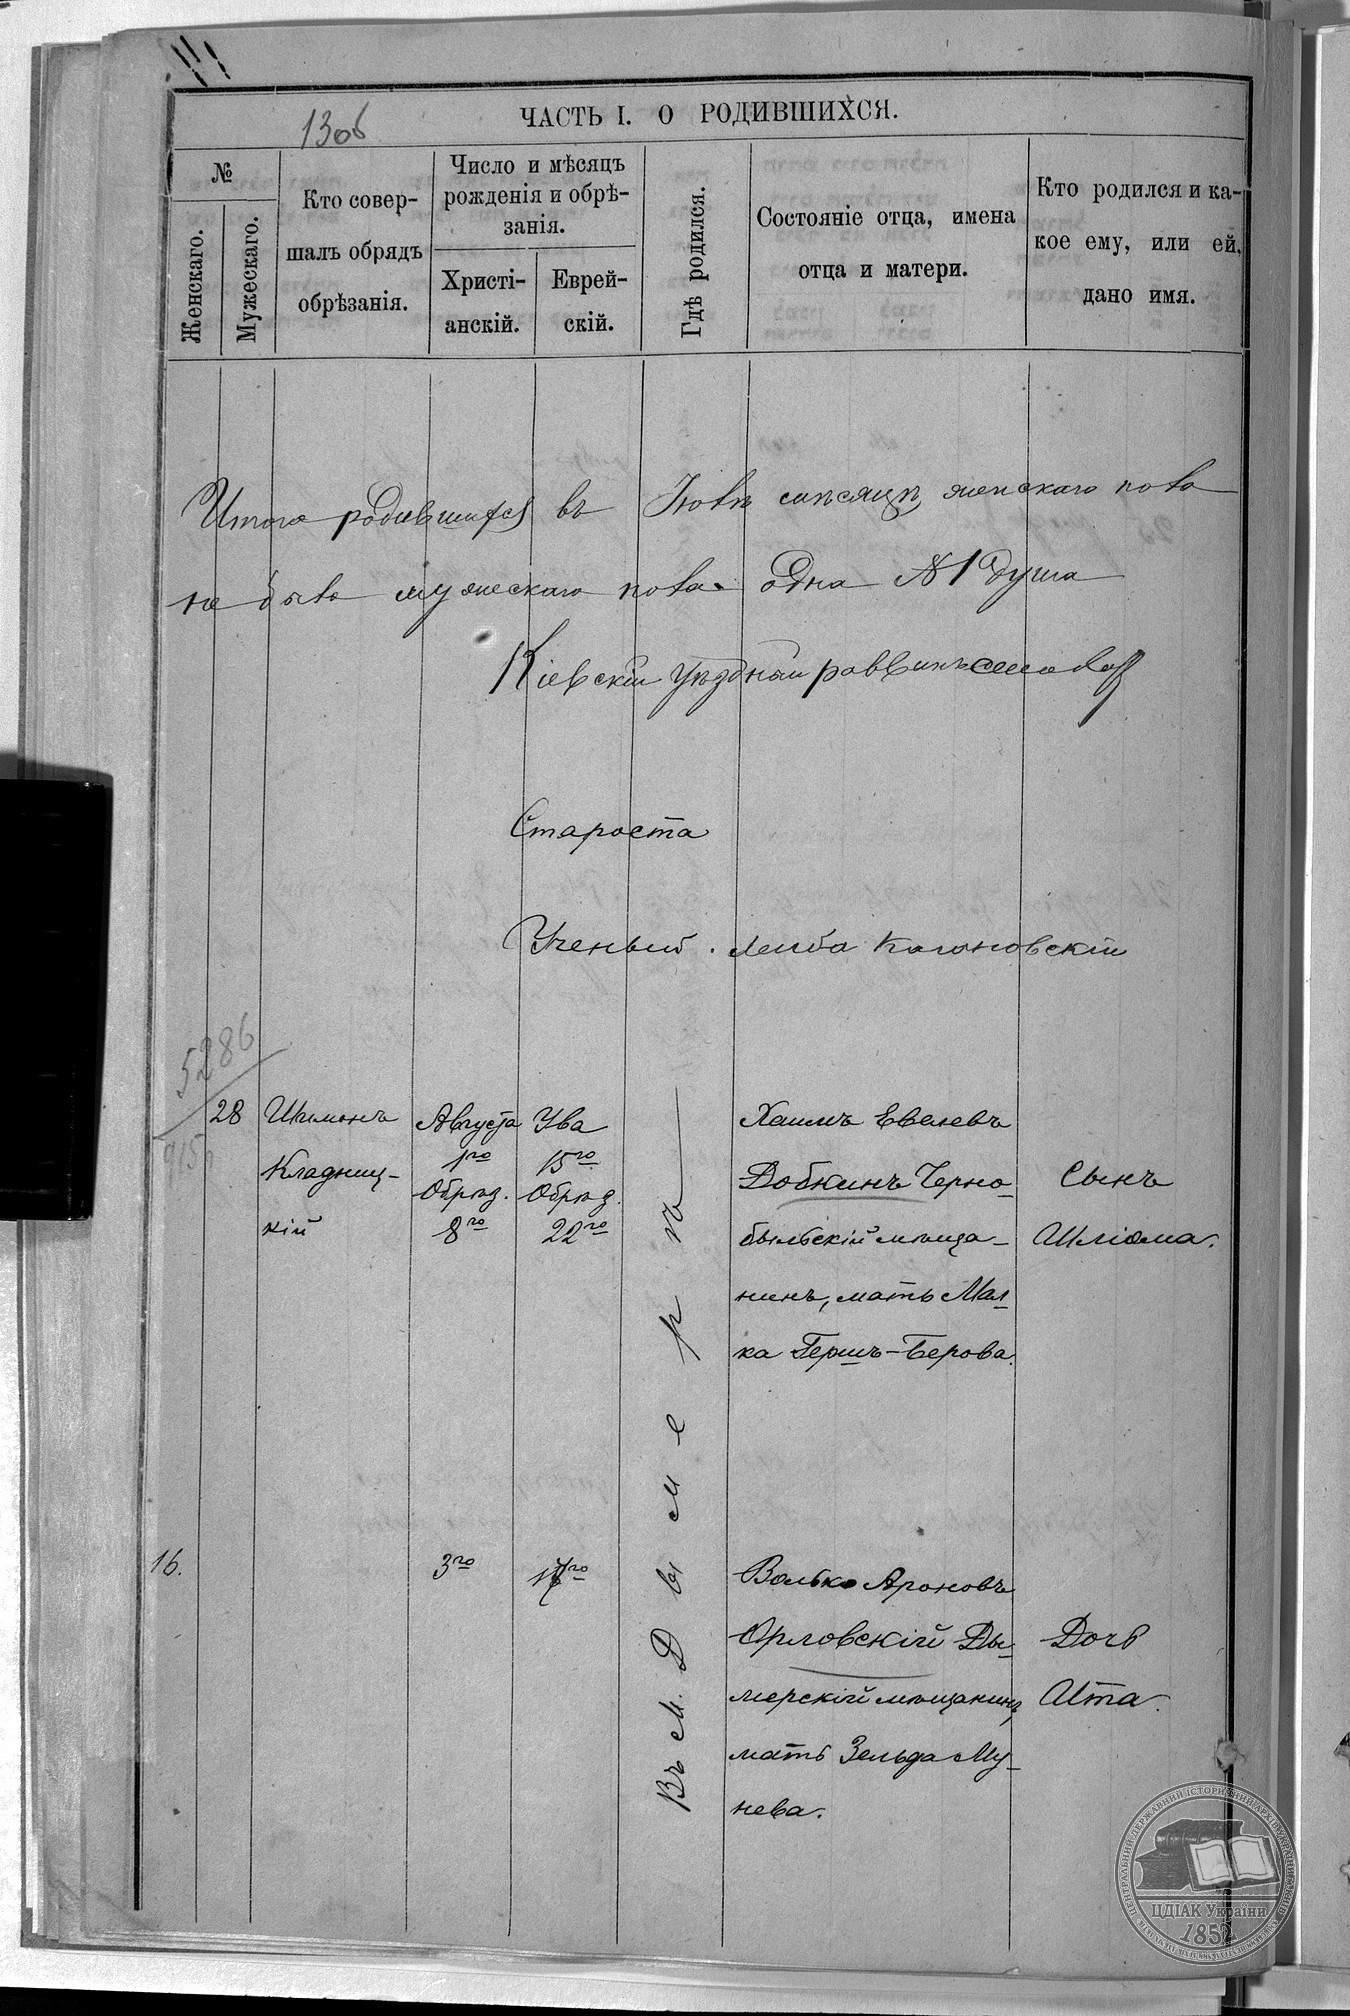 130б
ЧАСТЬ I. О РОДИВШИХСЯ.
№
Женскаго.
Мужескаго.
Кто совер-
шалъ обрядъ
обрѣзанія.
Число и мѣсяцъ
рожденія и обрѣ-
занія.
Христі-
анскій.
Еврей-
скій.
Гдѣ родился.
Состояніе отца, имена
отца и матери.
Кто родился и ка-
кое ему, или ей,
дано имя.
Итого родившихся въ мѣсяцѣ женскаго пола
не было мужескаго пола одна № 1 душа
Кіевскій уѣздный раввинъ
Староста
Ученый Лейба Кагановскій
5286
915
28
Шимонъ
Кладниц-
кій
Августа
1го
Обрѣз.
8го
Ува
15го
Обрѣз.
22го
Въ м. Дымерѣ
Хаимъ Евелевъ
Добкинъ Черно-
быльскій мѣща-
нинъ, мать Мал-
ка Гершъ-Берова.
Сынъ
Шліома.
16.
3го
17го
Волько Ароновъ
Орловскій Ды-
мерскій мѣщанинъ,
мать Зельда Му-
нева.
Дочь
Ита.
ЦЕНТРАЛЬНИЙ ДЕРЖАВНИЙ ІСТОРИЧНИЙ АРХІВ УКРАЇНИ
ЦДІАК України
1852